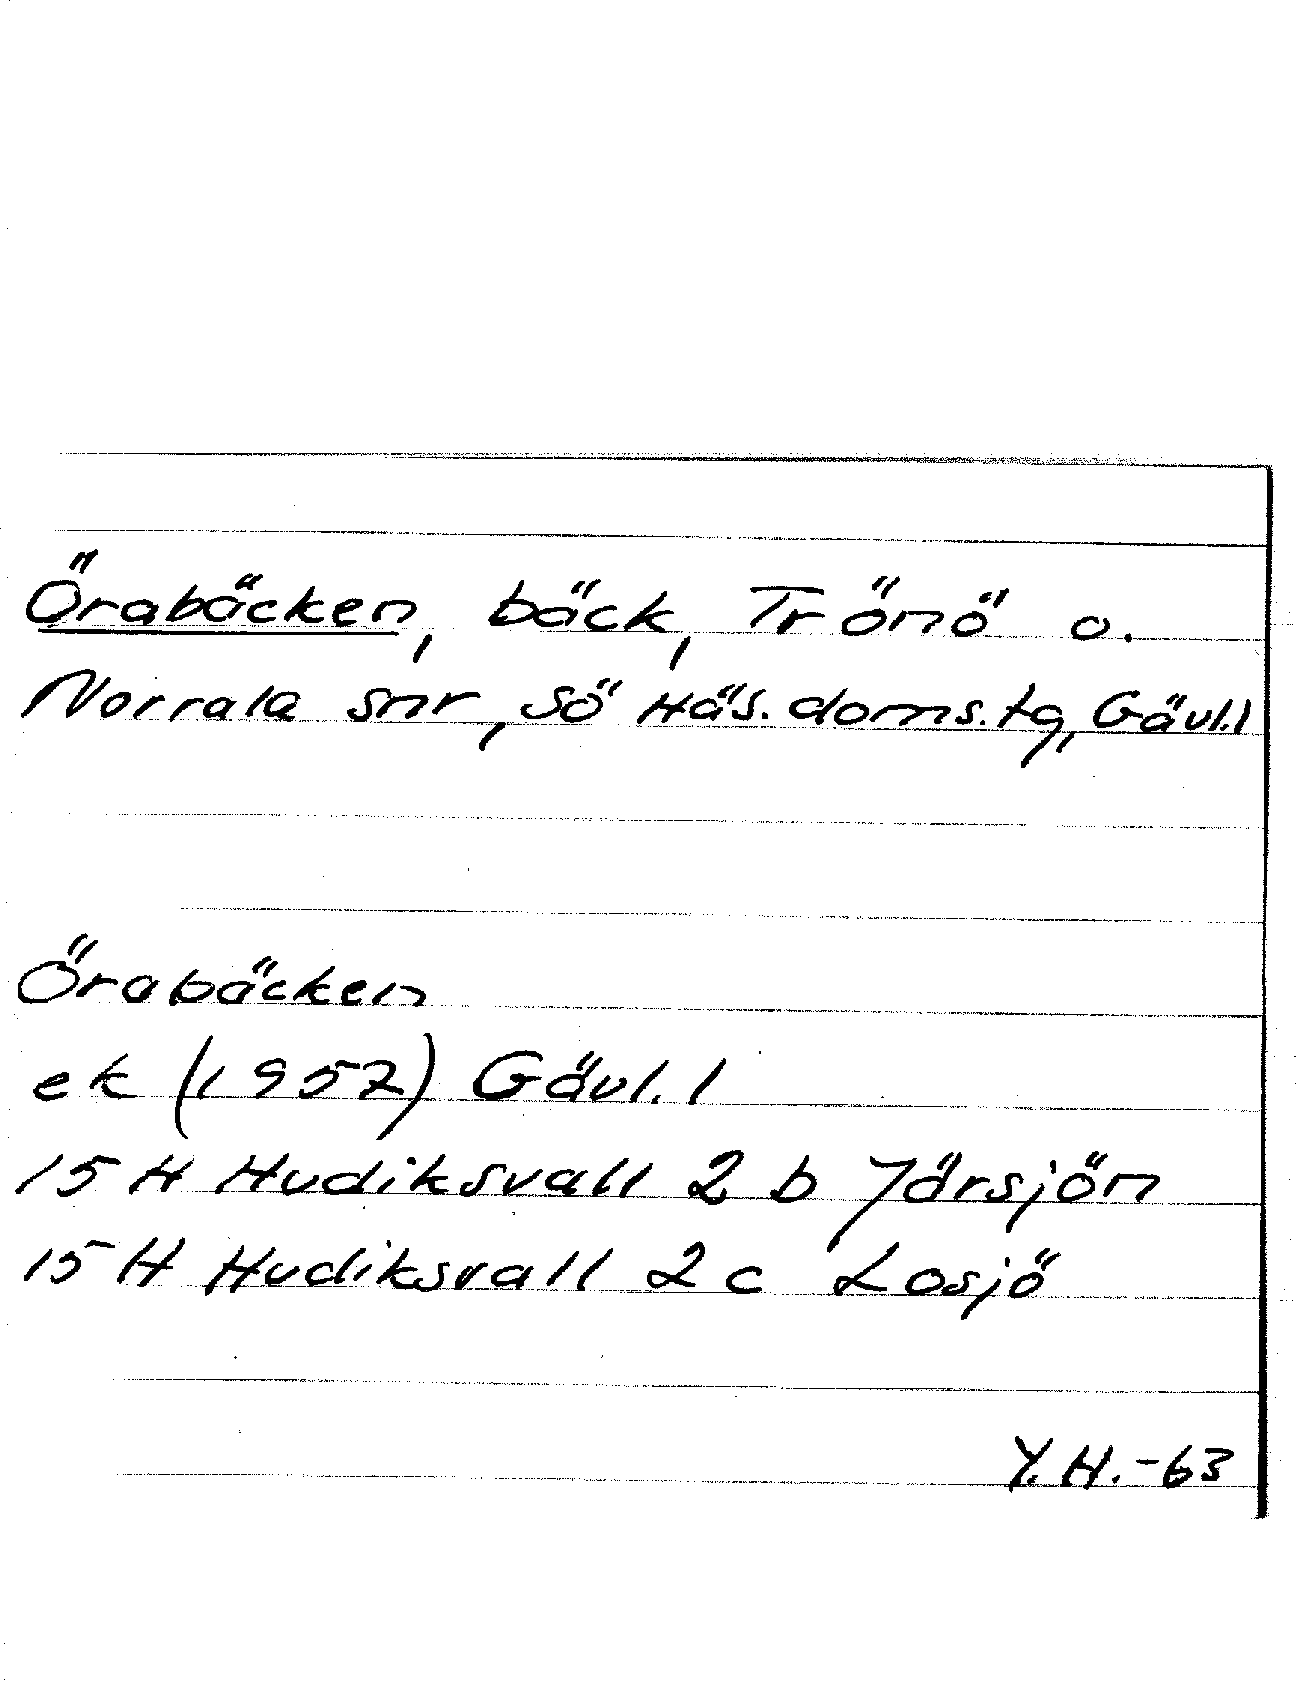 Örabäcken, bäck, Trönö o.
Norrala snr, Sö Häs. doms.tg, Gävl.l
Örabäcken
ek (1952) Gävl. l
15 H Hudiksvall 2 b Järsjön
15 H Hudiksvall 2 c Losjö
Y.H.-63